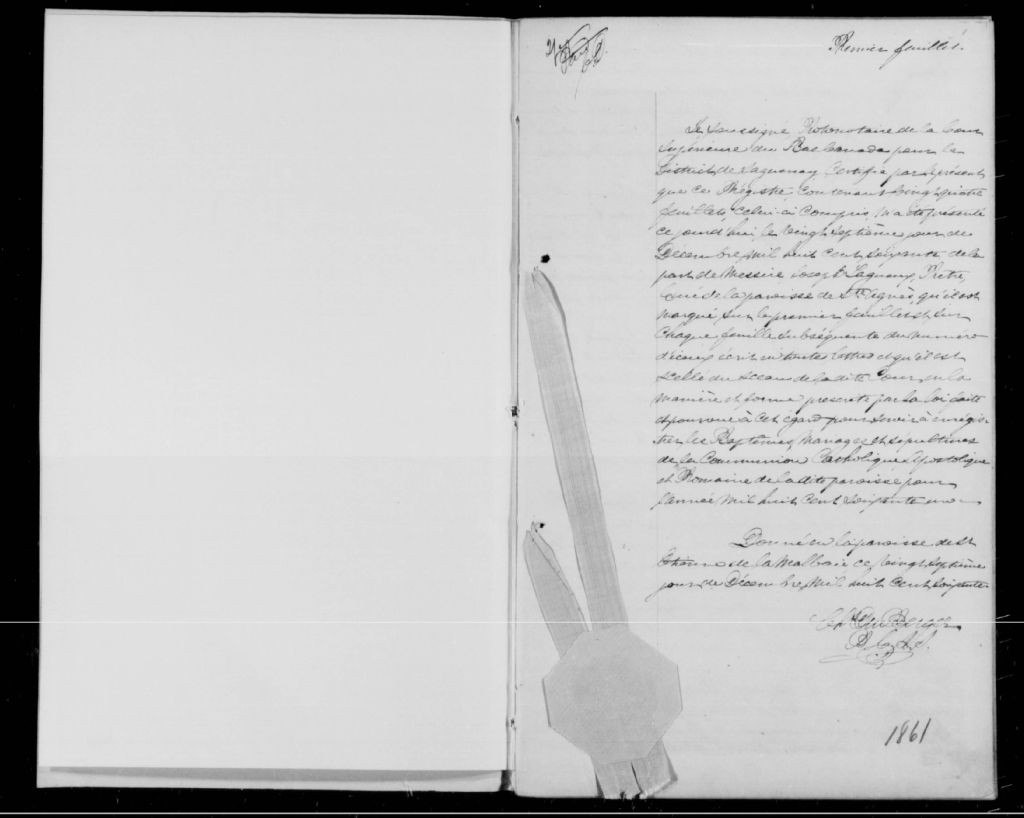 Premier feuillet.
Je soussigné Protonotaire de la Cour
Supérieure du Bas Canada pour le
District de Saguenay Certifie par le présent
que ce Régistre, contenant vingt quatre
feuillets, celui-ci compris, m'a été présenté
ce jourd'hui, le vingt septième jour de
Décembre Mil huit cent soixante de la
part de Messire Joseph Lagueux, Prêtre,
Curé de la paroisse de Ste Agnès, qu'il est
marqué, sur le premier feuillet et sur
chaque feuille subséquente du numéro
d'iceux écrit en toutes lettres et qu'il est
scellé du sceau de la dite Cour, en la
manière et forme prescrite par la loi faite
et pourvue à cet égard pour servir à enrégis-
trer les Baptêmes, Mariages et sépultures
de la Communion Catholique, Apostolique
et Romaine de la dite paroisse pour
l'année Mil huit cent soixante un
Donné en la paroisse de St
Etienne de la Malbaie ce vingt septième
jour de Décembre, Mil huit cent soixante
Chs Du Berger
P. C. S.
1861